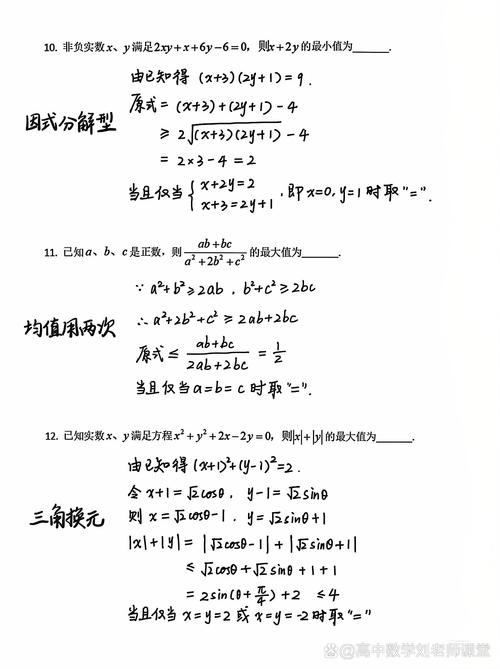 10. 非负实数x、y满足2xy+x+6y-6=0，则x+2y的最小值为______.
由已知得 (x+3)(2y+1)=9.
因式分解型
原式=(x+3)+(2y+1)-4
≥2√(x+3)(2y+1)-4
=2×3-4=2
当且仅当{x+2y=2 x+3=2y+1, 即x=0,y=1时取"=".
11. 已知a、b、c是正数，则(ab+bc)/(a²+2b²+c²)的最大值为______.
∵ a²+b²≥2ab, b²+c²≥2bc
均值用两次
∴ a²+2b²+c²≥2ab+2bc
原式≤(ab+bc)/(2ab+2bc)=1/2
当且仅当a=b=c时取"=".
12. 已知实数x、y满足方程x²+y²+2x-2y=0，则|x|+|y|的最大值为______.
由已知得(x+1)²+(y-1)²=2.
令x+1=√2cosθ, y-1=√2sinθ
三角换元
则x=√2cosθ-1, y=√2sinθ+1
|x|+|y|=|√2cosθ-1|+|√2sinθ+1|
≤√2cosθ+√2sinθ+1+1
=2sin(θ+π/4)+2 ≤4
当且仅当x=y=2或x=y=-2时取"="
@高中数学刘老师课堂